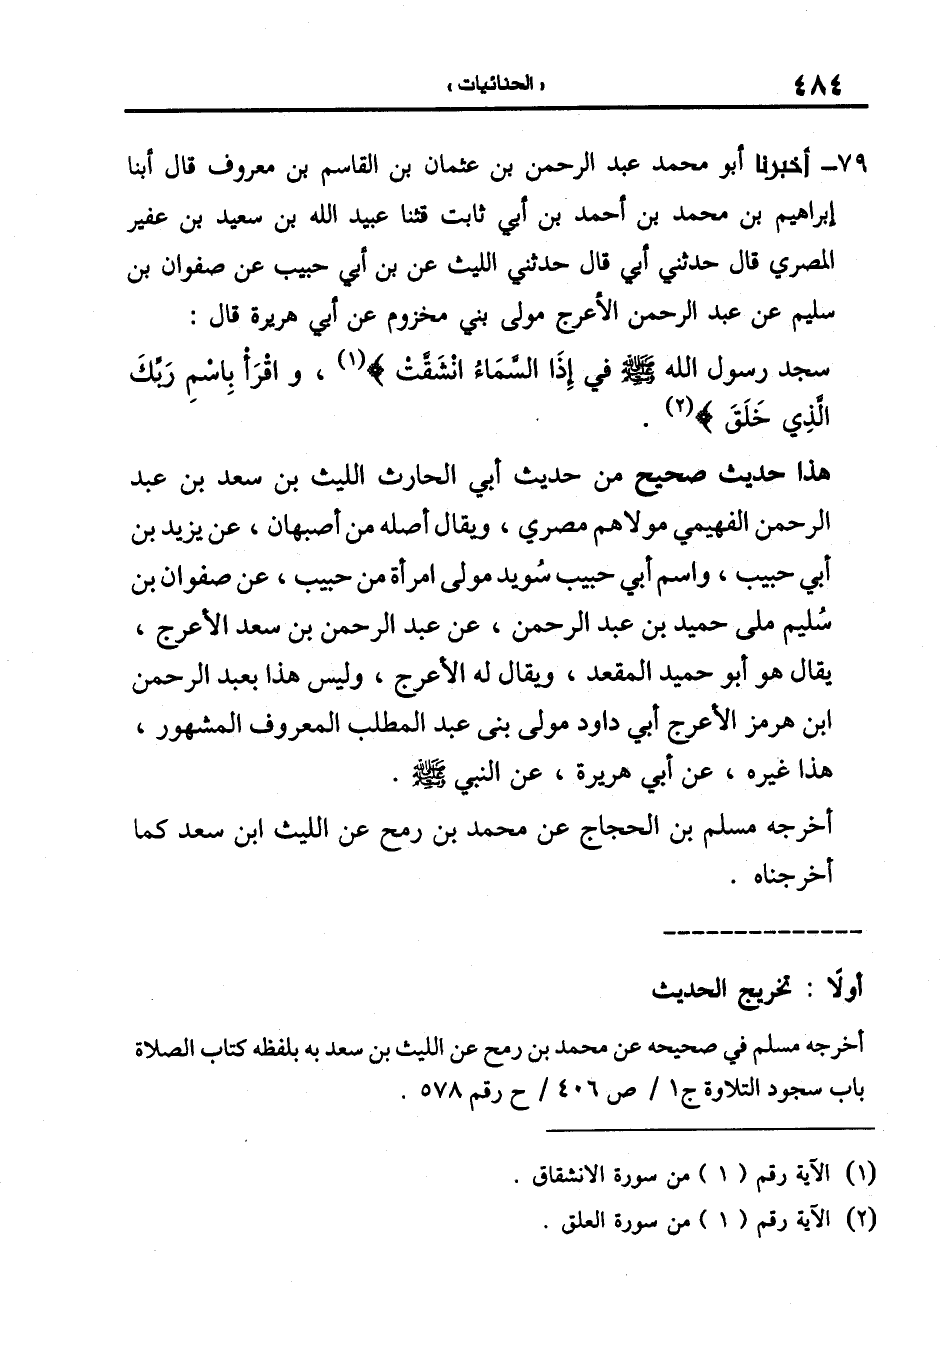 ٤٨٤
« الحنائيات »
٧٩ـ أخبرنا أبو محمد عبد الرحمن بن عثمان بن القاسم بن معروف قال أبنا
إبراهيم بن محمد بن أحمد بن أبي ثابت قثنا عبيد الله بن سعيد بن عفير
المصري قال حدثني أبي قال حدثني الليث عن بن أبي حبيب عن صفوان بن
سليم عن عبد الرحمن الأعرج مولى بني مخزوم عن أبي هريرة قال :
سجد رسول الله ﷺ في إِذَا السَّمَاءُ انْشَقَّتْ ﴾(١) ، و اقْرَأْ بِاسْمِ رَبِّكَ
الَّذِي خَلَقَ ﴾(٢) .
هذا حديث صحيح من حديث أبي الحارث الليث بن سعد بن عبد
الرحمن الفهيمي مولاهم مصري ، ويقال أصله من أصبهان ، عن يزيد بن
أبي حبيب ، واسم أبي حبيب سُويد مولى امرأة من حبيب ، عن صفوان بن
سُليم ملى حميد بن عبد الرحمن ، عن عبد الرحمن بن سعد الأعرج ،
يقال هو أبو حميد المقعد ، ويقال له الأعرج ، وليس هذا بعبد الرحمن
ابن هرمز الأعرج أبي داود مولى بنى عبد المطلب المعروف المشهور ،
هذا غيره ، عن أبي هريرة ، عن النبي ﷺ .
أخرجه مسلم بن الحجاج عن محمد بن رمح عن الليث ابن سعد كما
أخرجناه .
--------------
أولًا : تخريج الحديث
أخرجه مسلم في صحيحه عن محمد بن رمح عن الليث بن سعد به بلفظه كتاب الصلاة
باب سجود التلاوة ج١ / ص ٤٠٦ / ح رقم ٥٧٨ .
(١) الآية رقم ( ١ ) من سورة الانشقاق .
(٢) الآية رقم ( ١ ) من سورة العلق .